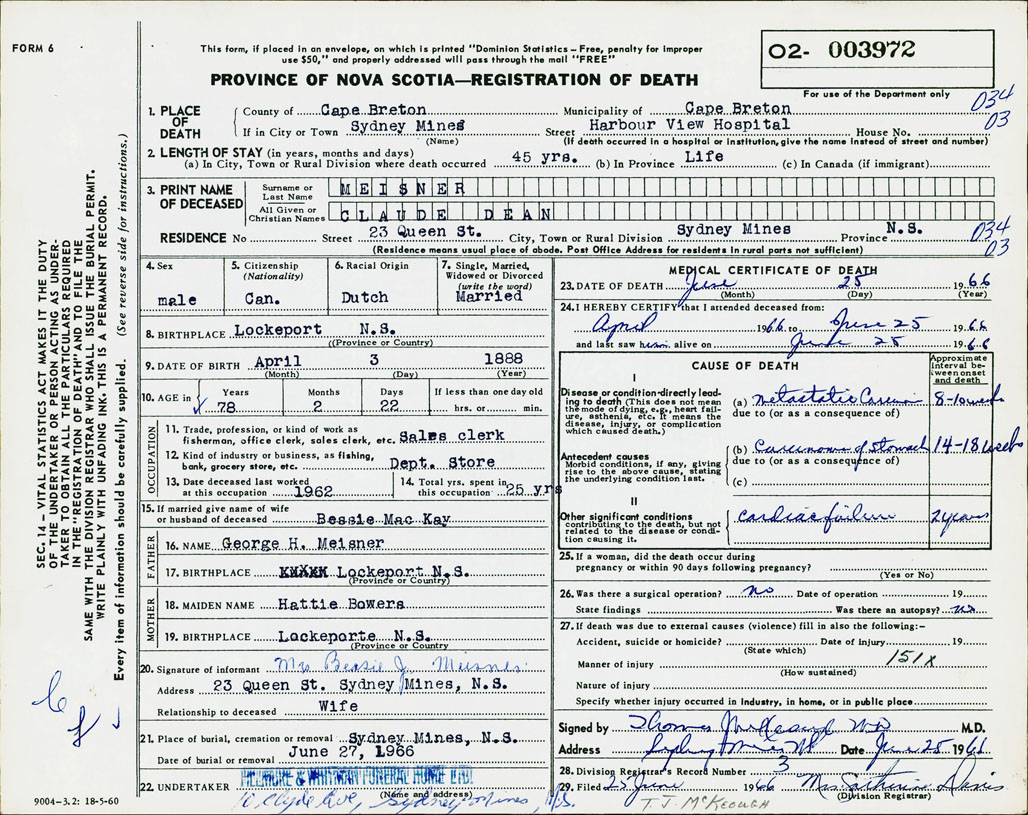 FORM 6
This form, if placed in an envelope, on which is printed "Dominion Statistics – Free, penalty for improper
use $50," and properly addressed will pass through the mail "FREE"
PROVINCE OF NOVA SCOTIA—REGISTRATION OF DEATH
02- 003972
For use of the Department only
034
03
1. PLACE OF DEATH County of Cape Breton Municipality of Cape Breton
If in City or Town Sydney Mines Street Harbour View Hospital House No.
(Name) (If death occurred in a hospital or institution, give the name instead of street and number)
2. LENGTH OF STAY (in years, months and days)
(a) In City, Town or Rural Division where death occurred 45 yrs. (b) In Province Life (c) In Canada (if immigrant)
3. PRINT NAME OF DECEASED Surname or Last Name MEISNER
All Given or Christian Names CLAUDE DEAN
RESIDENCE No Street 23 Queen St. City, Town or Rural Division Sydney Mines Province N.S.
(Residence means usual place of abode. Post Office Address for residents in rural parts not sufficient)
034
03
4. Sex male
5. Citizenship (Nationality) Can.
6. Racial Origin Dutch
7. Single, Married, Widowed or Divorced (write the word) Married
8. BIRTHPLACE Lockeport N.S.
((Province or Country)
9. DATE OF BIRTH April 3 1888
(Month) (Day) (Year)
10. AGE in Years Months Days If less than one day old
78 2 22 hrs. or min.
OCCUPATION
11. Trade, profession, or kind of work as
fisherman, office clerk, sales clerk, etc. Sales clerk
12. Kind of industry or business, as fishing,
bank, grocery store, etc. Dept. Store
13. Date deceased last worked
at this occupation 1962
14. Total yrs. spent in
this occupation 25 yrs
15. If married give name of wife
or husband of deceased Bessie Mac Kay
FATHER
16. NAME George H. Meisner
17. BIRTHPLACE Lockeport N.S.
(Province or Country)
MOTHER
18. MAIDEN NAME Hattie Bowers
19. BIRTHPLACE Lockeporte N.S.
(Province or Country
20. Signature of informant Mrs Bessie J. Meisner
Address 23 Queen St. Sydney Mines, N.S.
Relationship to deceased Wife
21. Place of burial, cremation or removal Sydney Mines, N.S.
Date of burial or removal June 27, 1966
22. UNDERTAKER FUNERAL HOME LTD.
(Name and address)
10 Clyde Ave, Sydney Mines, N.S.
9004-3.2: 18-5-60
MEDICAL CERTIFICATE OF DEATH
23. DATE OF DEATH June 25 1966
(Month) (Day) (Year)
24. I HEREBY CERTIFY that I attended deceased from:
April 1966 to June 25 1966
and last saw him alive on June 25 1966
CAUSE OF DEATH
Approximate interval between onset and death
I
Disease or condition directly leading to death (This does not mean the mode of dying, e.g., heart failure, asthenia, etc. It means the disease, injury, or complication which caused death.)
(a) Metastatic Carcinoma 8-10 weeks
due to (or as a consequence of)
Antecedent causes
Morbid conditions, if any, giving rise to the above cause, stating the underlying condition last.
(b) Carcinoma of Stomach 14-18 weeks
due to (or as a consequence of)
(c)
II
Other significant conditions
contributing to the death, but not related to the disease or condition causing it.
cardiac failure 2 years
25. If a woman, did the death occur during
pregnancy or within 90 days following pregnancy?
(Yes or No)
26. Was there a surgical operation? no Date of operation 19
State findings Was there an autopsy? no
27. If death was due to external causes (violence) fill in also the following:–
Accident, suicide or homicide? Date of Injury 19
(State which)
151X
Manner of injury
(How sustained)
Nature of injury
Specify whether injury occurred in Industry, in home, or in public place
Signed by Thomas M.D.
Address Sydney Mines NS Date June 25 1966
28. Division Registrar's Record Number 3
29. Filed 25 June 1966 Mrs. Catherine Davis
(Division Registrar)
T.J. McKEOUGH
SEC. 14 – VITAL STATISTICS ACT MAKES IT THE DUTY
OF THE UNDERTAKER OR PERSON ACTING AS UNDER-
TAKER TO OBTAIN ALL THE PARTICULARS REQUIRED
IN THE "REGISTRATION OF DEATH" AND TO FILE THE
SAME WITH THE DIVISION REGISTRAR WHO SHALL ISSUE THE BURIAL PERMIT.
WRITE PLAINLY WITH UNFADING INK. THIS IS A PERMANENT RECORD.
Every item of information should be carefully supplied. (See reverse side for instructions.)